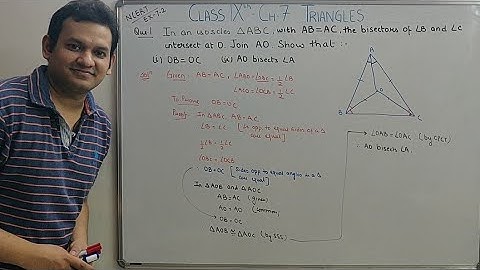 NCERT
EX-7.2
CLASS IXth: CH 7 TRIANGLES
Que:1 In an isosceles △ABC, with AB=AC, the bisectors of ∠B and ∠C
intersect at O. Join AO. Show that :-
(i) OB=OC (ii) AO bisects ∠A
Solⁿ Given: AB=AC, ∠ABO=∠OBC=½∠B
∠ACO=∠OCB=½∠C
To Prove: OB=OC
Proof: In △ABC, AB=AC
∠B=∠C [∠s opp. to equal sides of a △ are equal]
½∠B=½∠C
∠OBC=∠OCB
OB=OC [Sides opp. to equal angles in a △ are equal]
In △AOB and △AOC
AB=AC (given)
AO=AO (common)
OB=OC
△AOB≅△AOC (by SSS)
A
O
B
C
∠OAB=∠OAC (by CPCT)
∴ AO bisects ∠A